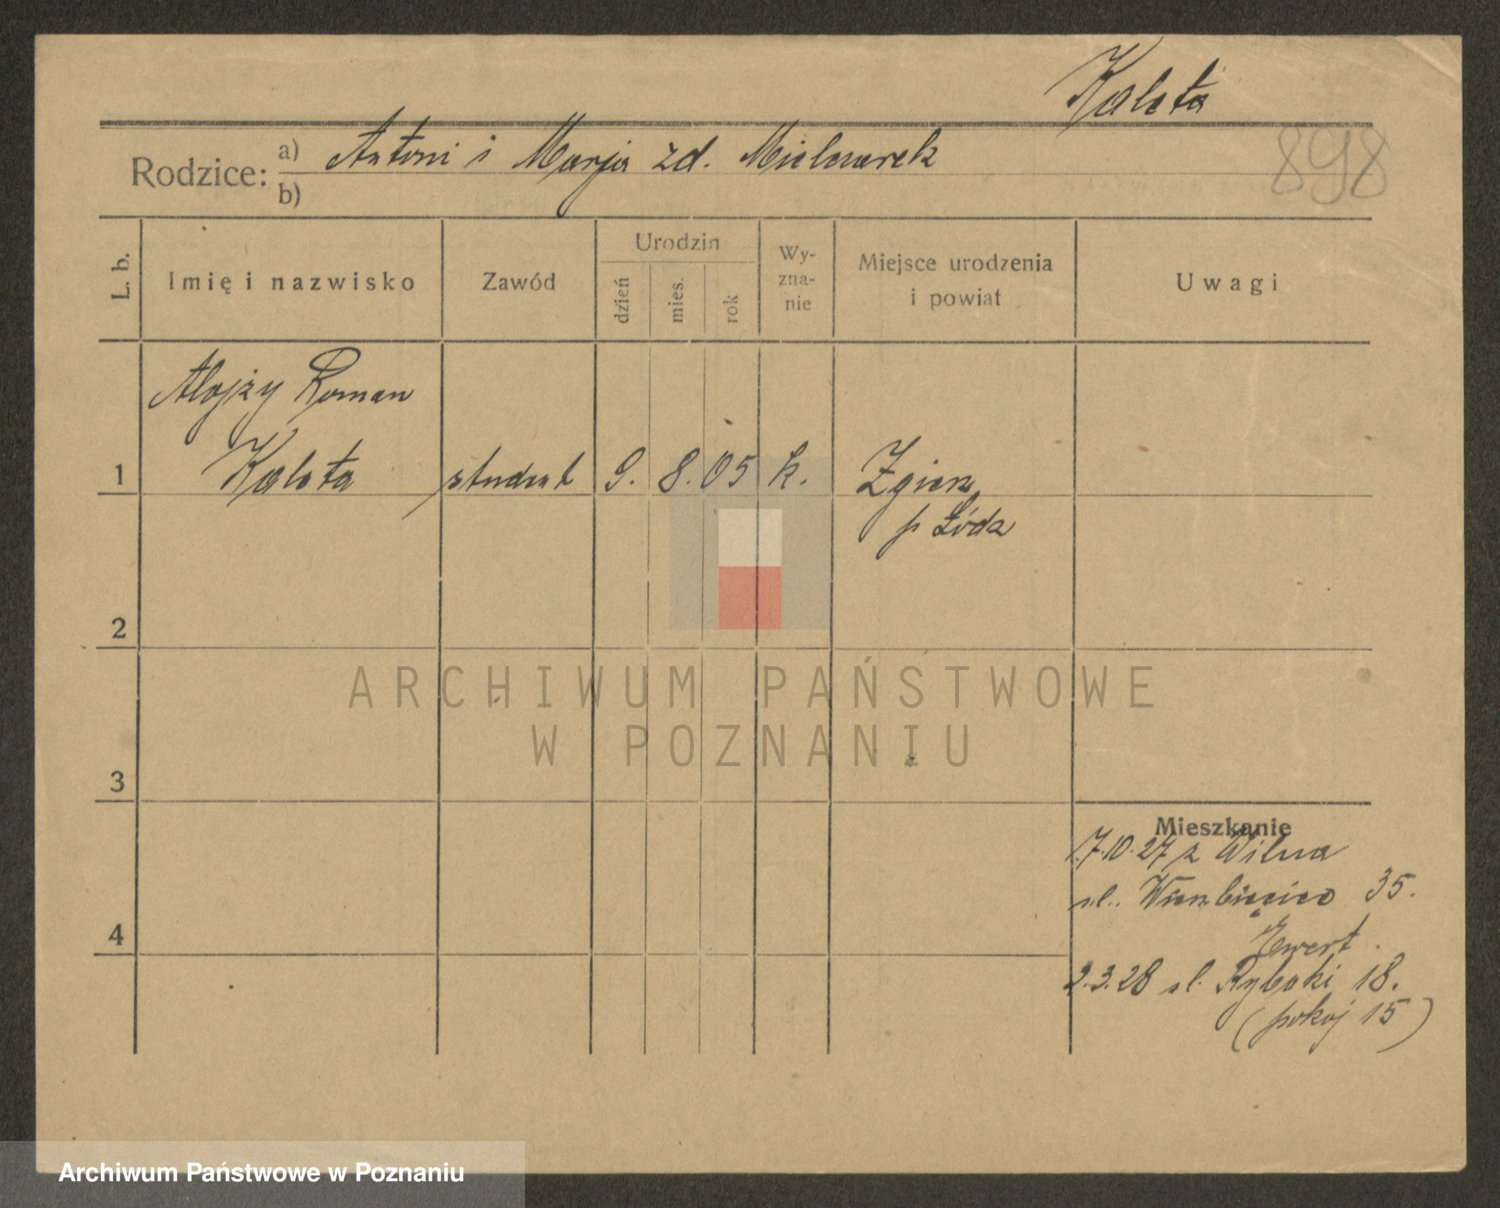 Kaleta
898
Rodzice: a) Antoni i Marja zd. Mielczarek
b)
L. b.
Imię i nazwisko
Zawód
Urodzin
dzień
mies.
rok
Wy-
zna-
nie
Miejsce urodzenia
i powiat
Uwagi
Alojzy Roman
1 Kaleta student 9. 8. 05 k. Zgierz
p Łódź
2
3
4
Mieszkanie
17.10.27 z Wilna
ul. Wierzbięcice 35.
Ewert.
2.3.28 ul. Rybaki 18.
(pokój 15)
ARCHIWUM PAŃSTWOWE
W POZNANIU
Archiwum Państwowe w Poznaniu